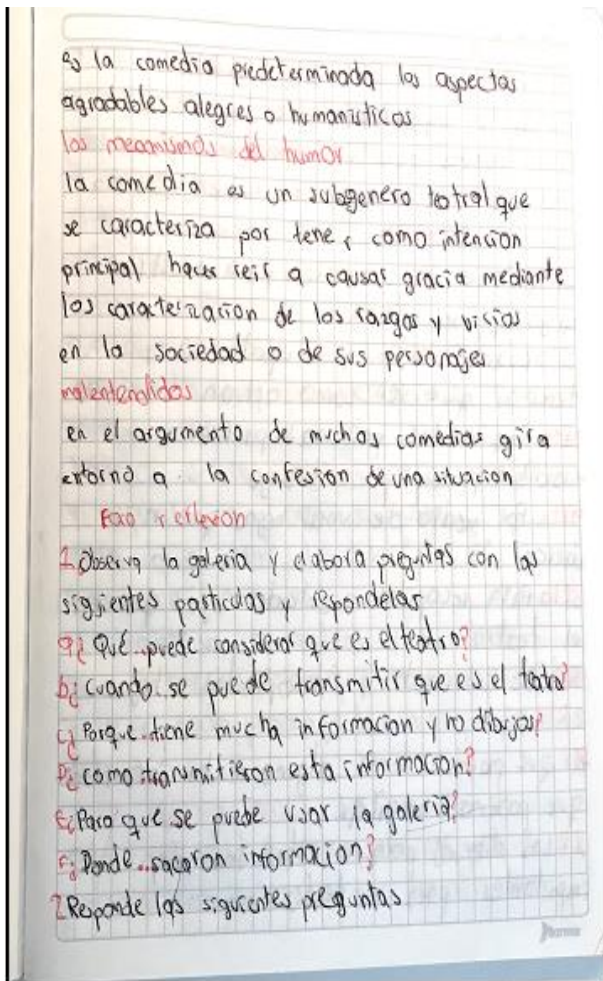 es la comedia predeterminada los aspectos
agradables alegres o humanisticos
los mecanismos del humor
la comedia es un subgenero teatral que
se caracteriza por tener como intencion
principal hacer reir a causar gracia mediante
los caracterizacion de los razgos y vicios
en la sociedad o de sus personajes
malentendidos
en el argumento de muchas comedias gira
entorno a la confesion de una situacion
reflexion
1 Observa la galeria y elabora preguntas con las
siguientes particulas y repondelas
a¿ Qué..puede considerar que es el teatro?
b¿ cuando se puede transmitir que es el teatro?
c¿ Porque..tiene mucha informacion y no dibujos?
D¿ como transmitieron esta informacion?
E¿ Para que se puebe usar la galeria?
F¿ Donde..sacaron informacion?
2 Responde las siguientes preguntas